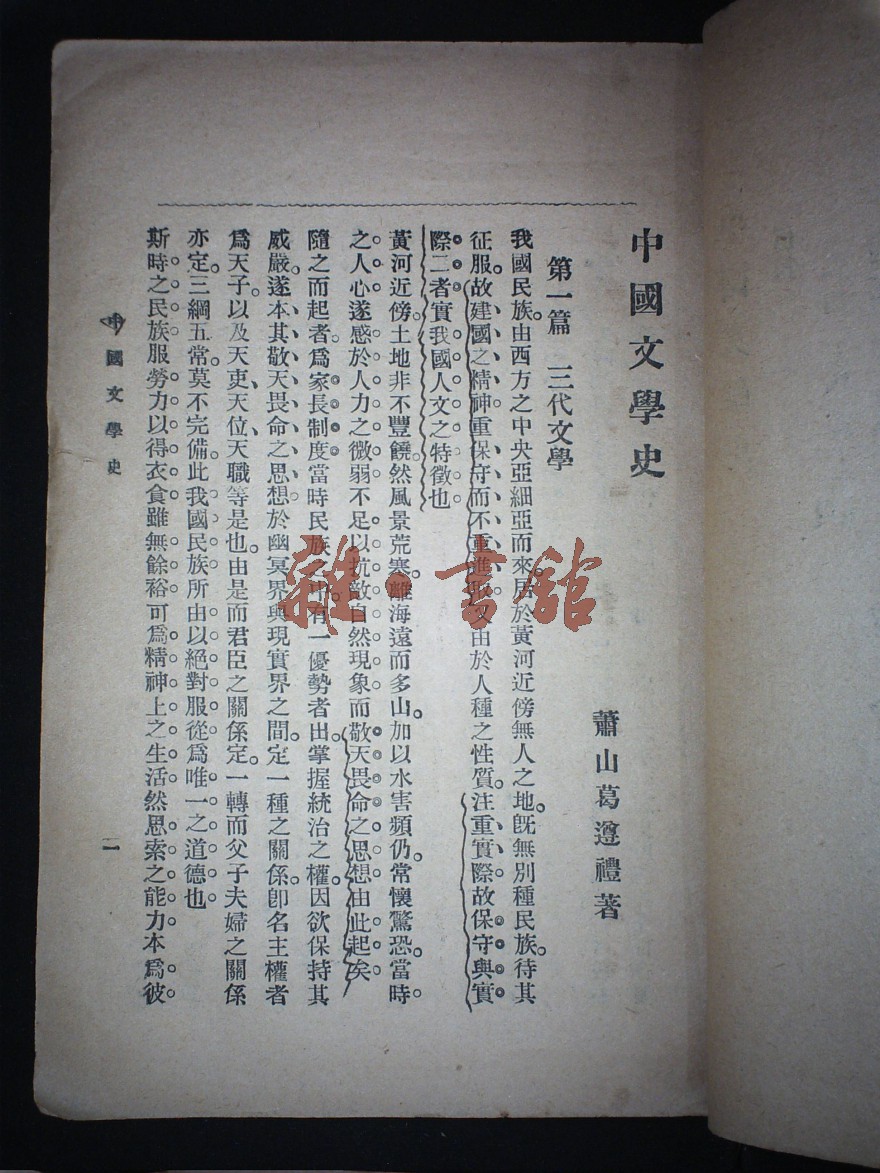 中國文學史
蕭山葛遵禮著
第一篇　三代文學
我國民族。由西方之中央亞細亞而來。居於黃河近傍無人之地。旣無別種民族。待其
征服。故建國之精神重保守而不重進取又由於人種之性質。注重實際故保守與實
際二者實我國人文之特徵也
黃河近傍。土地非不豐饒。然風景荒寒。離海遠而多山。加以水害頻仍。常懷驚恐。當時
之人心遂感於人力之微弱不足以抗敵自然現象而敬天畏命之思想由此起矣
隨之而起者。爲家長制度當時民族之中。有一優勢者出。掌握統治之權。因欲保持其
威嚴。遂本其敬天畏命之思想於幽冥界與現實界之間。定一種之關係。卽名主權者
爲天子。以及天吏、天位、天職等是也。由是而君臣之關係定。一轉而父子夫婦之關係
亦定。三綱五常。莫不完備。此我國民族所由以絕對服從爲唯一之道德也
斯時之民族服勞力以得衣食雖無餘裕可爲精神上之生活然思索之能力本爲彼
中國文學史
一
雜·書舘